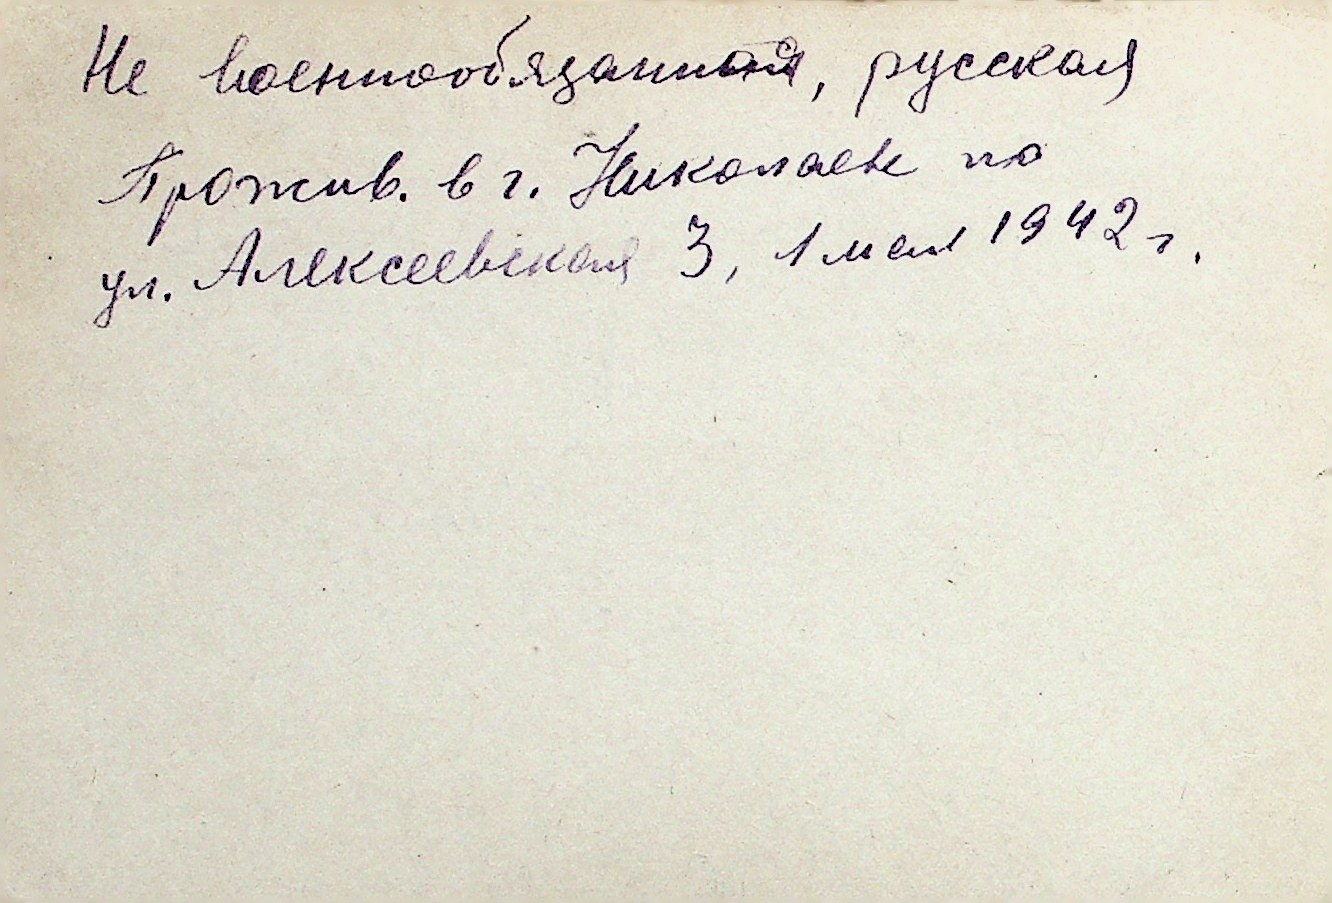 Не военнообязанная, русская
Прожив. в г. Николаеве по
ул. Алексеевская 3, 1 мая 1942 г.